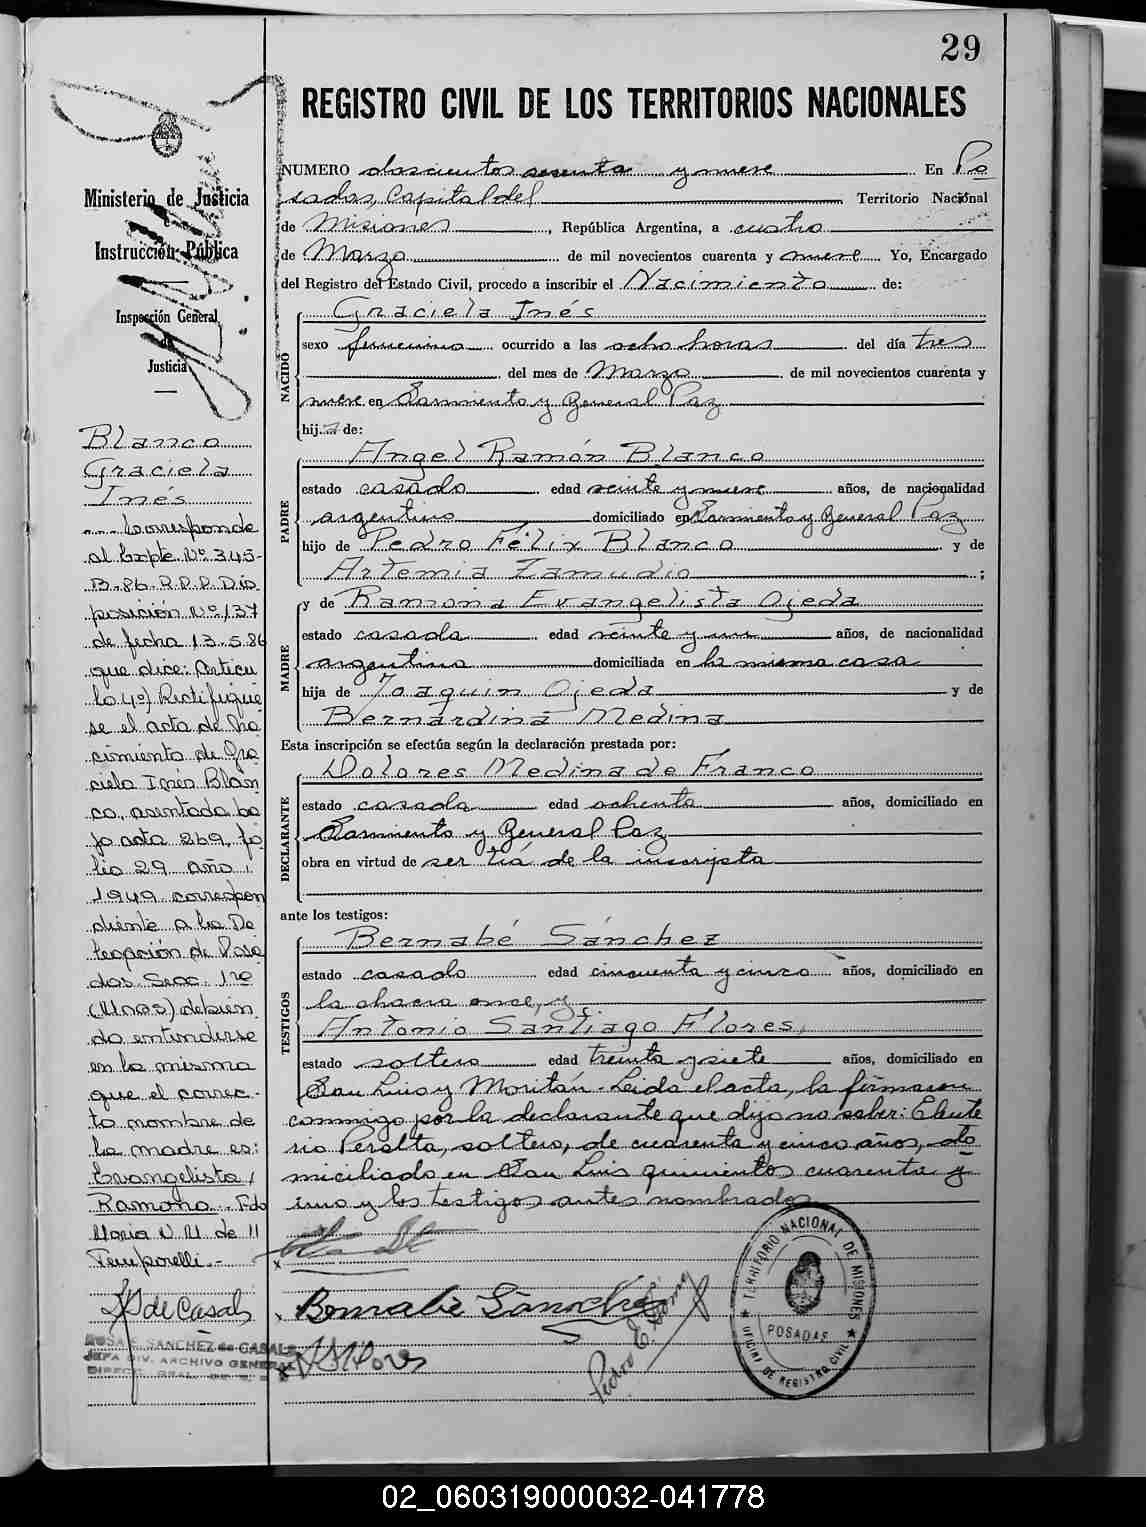 29
REGISTRO CIVIL DE LOS TERRITORIOS NACIONALES
Ministerio de Justicia
Instrucción Pública
Inspección General
de
Justicia
NUMERO doscientos sesenta y nueve En Po
sadas, Capital del Territorio Nacional
de Misiones, República Argentina, a cuatro
de Marzo de mil novecientos cuarenta y nueve Yo, Encargado
del Registro del Estado Civil, procedo a inscribir el Nacimiento de:
NACIDO
Graciela Inés
sexo femenino ocurrido a las ocho horas del día tres
del mes de Marzo de mil novecientos cuarenta y
nueve en Sarmiento y General Paz
hija de:
PADRE
Angel Ramón Blanco
estado casado edad veinte y nueve años, de nacionalidad
argentino domiciliado en Sarmiento y General Paz
hijo de Pedro Félix Blanco y de
Artemia Zamudio;
MADRE
y de Ramona Evangelista Ojeda
estado casada edad veinte y un años, de nacionalidad
argentina domiciliada en la misma casa
hija de Joaquin Ojeda y de
Bernardina Medina
Esta inscripción se efectúa según la declaración prestada por:
DECLARANTE
Dolores Medina de Franco
estado casada edad ochenta años, domiciliado en
Sarmiento y General Paz
obra en virtud de ser tía de la inscripta
ante los testigos:
TESTIGOS
Bernabé Sánchez
estado casado edad cincuenta y cinco años, domiciliado en
la chacra once, y
Antonio Santiago Flores,
estado soltero edad treinta y siete años, domiciliado en
San Luis y Moritán. Leida el acta, la firmaron
conmigo por la declarante que dijo no saber: Eleute
rio Peralta, soltero, de cuarenta y cinco años, do
miciliado en San Luis quinientos cuarenta y
uno y los testigos antes nombrados
Bernabe Sanchez
ASFlores
TERRITORIO NACIONAL DE MISIONES
POSADAS
OFICINA DE REGISTRO CIVIL
Blanco
Graciela
Inés
Corresponde
al Expte. Nº 345-
B-86 R.P.P. Dis
posición Nº 137
de fecha 13.5.86
que dice: Articu
lo 4º) Rectifíque
se el acta de Na
cimiento de Gra
ciela Inés Blan
co, asentada ba
jo acta 269, fo
lio 29 año
1949 correspon
diente a la De
legación de Posa
das Secc. 1ra
(Mnes) debien
do entenderse
en la misma
que el correc-
to nombre de
la madre es:
Evangelista
Ramona. Fdo
Maria N. M. de
Temporelli.-
de Casals
ROSA E. SANCHEZ de CASALS
JEFA DIV. ARCHIVO GENERAL
02_060319000032-041778